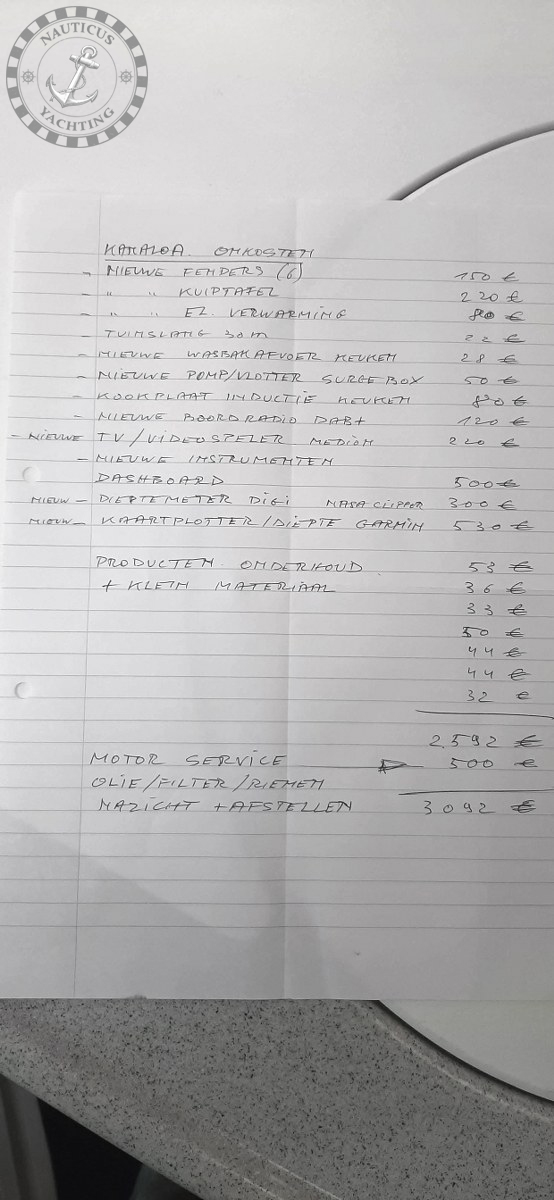 NAUTICUS
YACHTING
KANALOA ONKOSTEN
- NIEUWE FENDERS (6) 150 €
- " " KUIPTAFEL 220 €
- " " EL. VERWARMING 80 €
- TUINSLANG 30 m 22 €
- NIEUWE WASBAKAFVOER KEUKEN 28 €
- NIEUWE POMP/VLOTTER SURGEBOX 50 €
- KOOKPLAAT INDUCTIE KEUKEN 80 €
- NIEUWE BOORDRADIO DAB+ 120 €
- NIEUWE TV/VIDEOSPELER MEDION 220 €
- NIEUWE INSTRUMENTEN
DASHBOARD 500 €
NIEUW - DIEPTEMETER DIGI NASA CLIPPER 300 €
NIEUW - KAARTPLOTTER/DIEPTE GARMIN 530 €
PRODUCTEN ONDERHOUD 53 €
+ KLEIN MATERIAAL 36 €
33 €
50 €
44 €
44 €
32 €
2592 €
MOTOR SERVICE 500 €
OLIE/FILTER/RIEMEN
NAZICHT + AFSTELLEN 3092 €